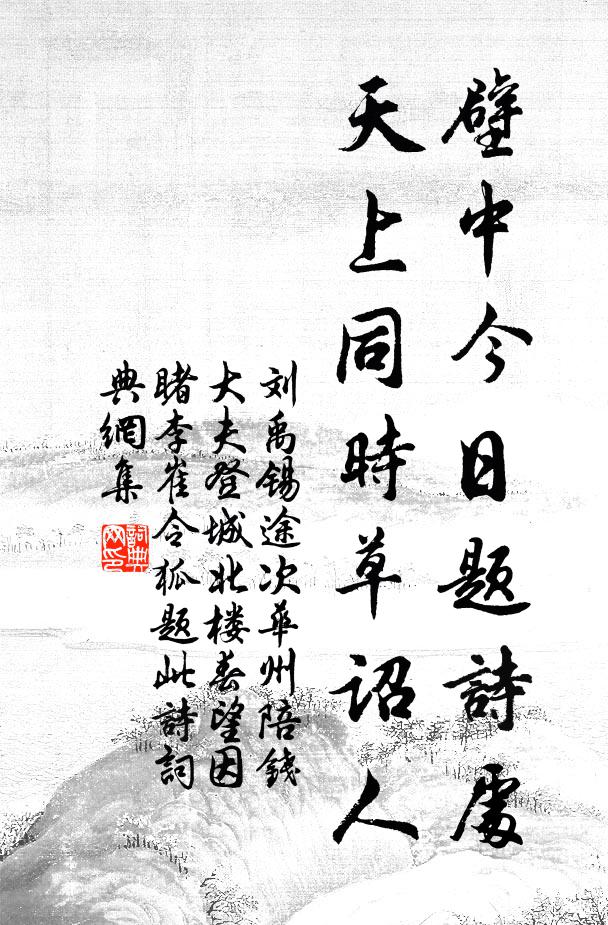 壁中今日题詩處
天上同時草詔人
刘禹锡途次华州陪錢
大夫登城北楼春望因
睹李崔令狐题此詩詞
典網集
詞典网印